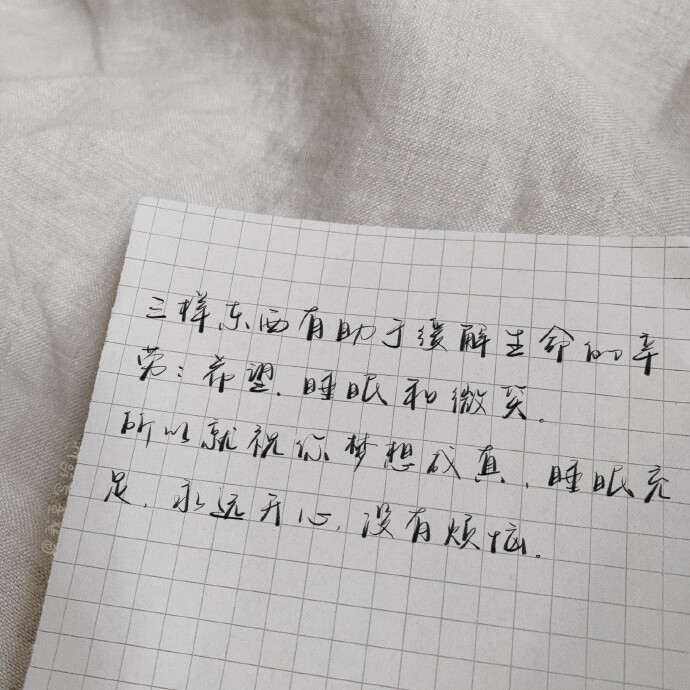 三样东西有助于缓解生命的辛
劳：希望、睡眠和微笑.
所以就祝你梦想成真、睡眠充
足、永远开心、没有烦恼.